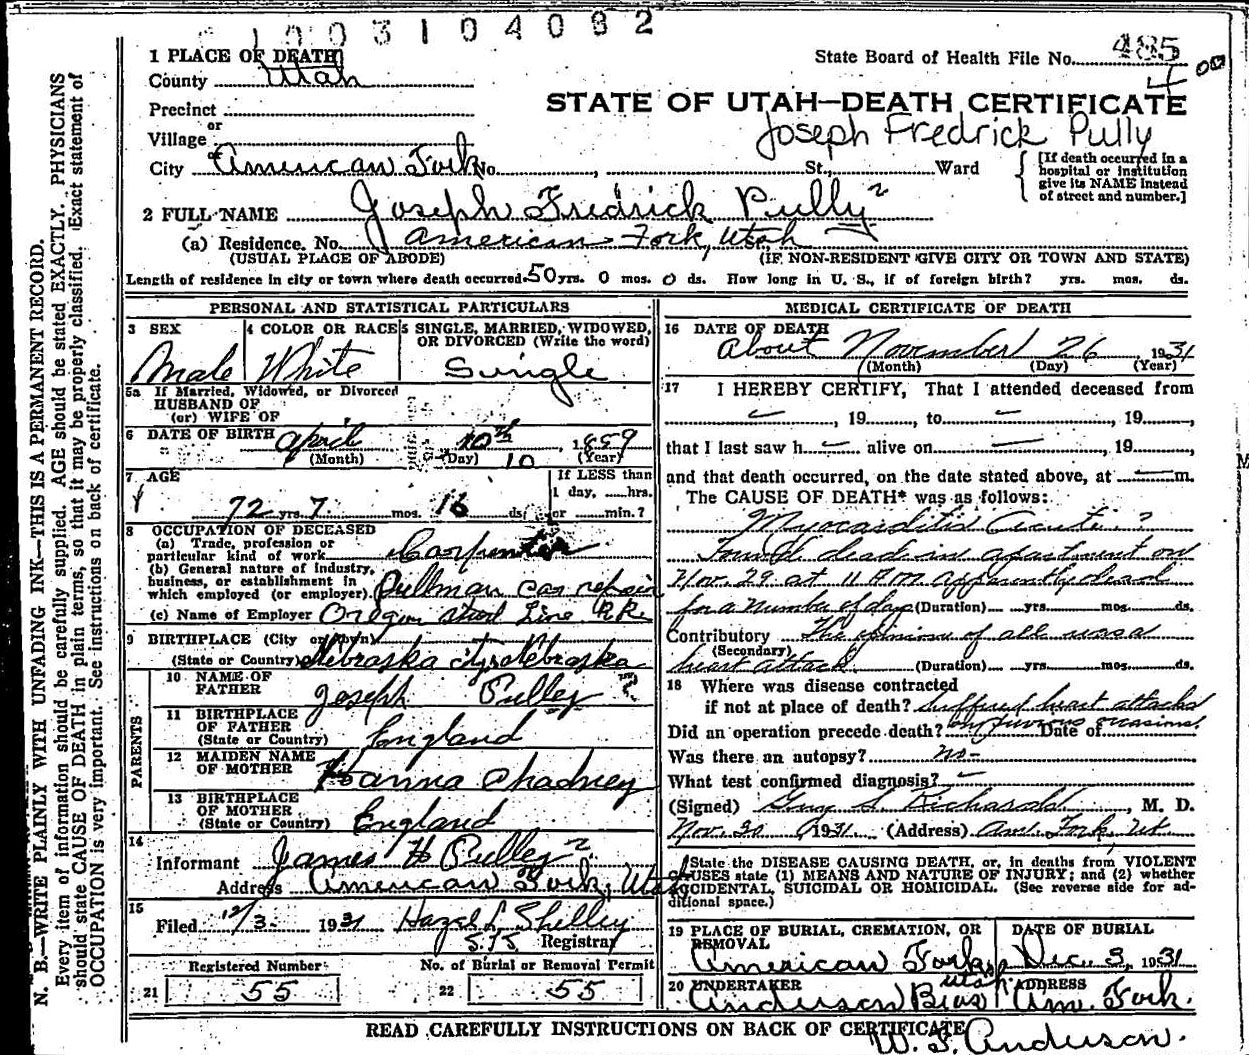 1003104082
1 PLACE OF DEATH
State Board of Health File No. 485
County Utah
4 00
Precinct
STATE OF UTAH—DEATH CERTIFICATE
or
Village
Joseph Fredrick Pully
or
City American Fork No. , St., Ward
[If death occurred in a hospital or institution give its NAME instead of street and number.]
2 FULL NAME Joseph Fredrick Pully ?
(a) Residence. No. American Fork, Utah
(USUAL PLACE OF ABODE) (IF NON-RESIDENT GIVE CITY OR TOWN AND STATE)
Length of residence in city or town where death occurred 50 yrs. 0 mos. 0 ds. How long in U. S., if of foreign birth? yrs. mos. ds.
PERSONAL AND STATISTICAL PARTICULARS
3 SEX
Male
4 COLOR OR RACE
White
5 SINGLE, MARRIED, WIDOWED, OR DIVORCED (Write the word)
Single
5a If Married, Widowed, or Divorced
HUSBAND OF
(or) WIFE OF
6 DATE OF BIRTH April 10th, 1859
(Month) (Day) 10 (Year)
7 AGE
If LESS than
1 day, ......hrs.
72 yrs. 7 mos. 16 ds. or ......min.?
8 OCCUPATION OF DECEASED
(a) Trade, profession or
particular kind of work Carpenter
(b) General nature of industry,
business, or establishment in
which employed (or employer) Pullman car repair
(c) Name of Employer Oregon Short Line RR
9 BIRTHPLACE (City or Town)
(State or Country) Nebraska City Nebraska
PARENTS
10 NAME OF
FATHER Joseph Pulley ?
11 BIRTHPLACE
OF FATHER
(State or Country) England
12 MAIDEN NAME
OF MOTHER Hanna Chadney
13 BIRTHPLACE
OF MOTHER
(State or Country) England
14
Informant James H Pulley ?
Address American Fork, Utah
15
Filed 12/3 1931 Hazel L Shelley
Registrar
Registered Number
21 55
No. of Burial or Removal Permit
22 55
MEDICAL CERTIFICATE OF DEATH
16 DATE OF DEATH
About November 26, 1931
(Month) (Day) (Year)
17 I HEREBY CERTIFY, That I attended deceased from
, 19 , to , 19 ,
that I last saw h alive on , 19 ,
and that death occurred, on the date stated above, at m.
The CAUSE OF DEATH* was as follows:
Myocarditis Acute ?
Found dead in apartment on
Nov. 29 at 11 P.M. apparently dead
for a number of days (Duration) yrs. mos. ds.
Contributory The opinion of all was a
(Secondary)
heart attack (Duration) yrs. mos. ds.
18 Where was disease contracted
if not at place of death? suffered heart attacks
on previous occasions
Did an operation precede death? Date of
Was there an autopsy? no-
What test confirmed diagnosis?
(Signed) Guy S. Richards, M. D.
Nov. 30, 1931 (Address) Am. Fork, Ut.
*State the DISEASE CAUSING DEATH, or, in deaths from VIOLENT
CAUSES state (1) MEANS AND NATURE OF INJURY; and (2) whether
ACCIDENTAL, SUICIDAL OR HOMICIDAL. (See reverse side for ad-
ditional space.)
19 PLACE OF BURIAL, CREMATION, OR
REMOVAL
American Fork
Utah
DATE OF BURIAL
Dec. 3, 1931
20 UNDERTAKER
Anderson Bros
ADDRESS
Am. Fork.
READ CAREFULLY INSTRUCTIONS ON BACK OF CERTIFICATE
W. S. Anderson.
N. B.—WRITE PLAINLY WITH UNFADING INK—THIS IS A PERMANENT RECORD.
Every item of information should be carefully supplied. AGE should be stated EXACTLY. PHYSICIANS
should state CAUSE OF DEATH in plain terms, so that it may be properly classified. Exact statement of
OCCUPATION is very important. See instructions on back of certificate.